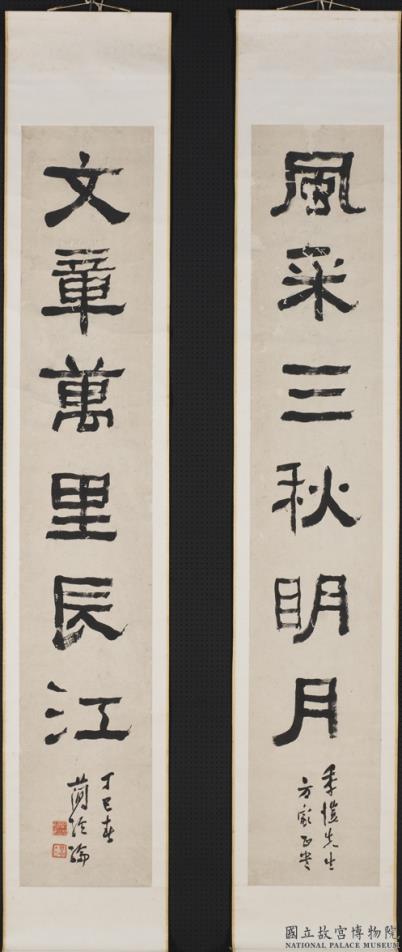 風采三秋明月
季愷先生
方家正書
文章萬里長江
丁巳春
國立故宮博物院
NATIONAL PALACE MUSEUM